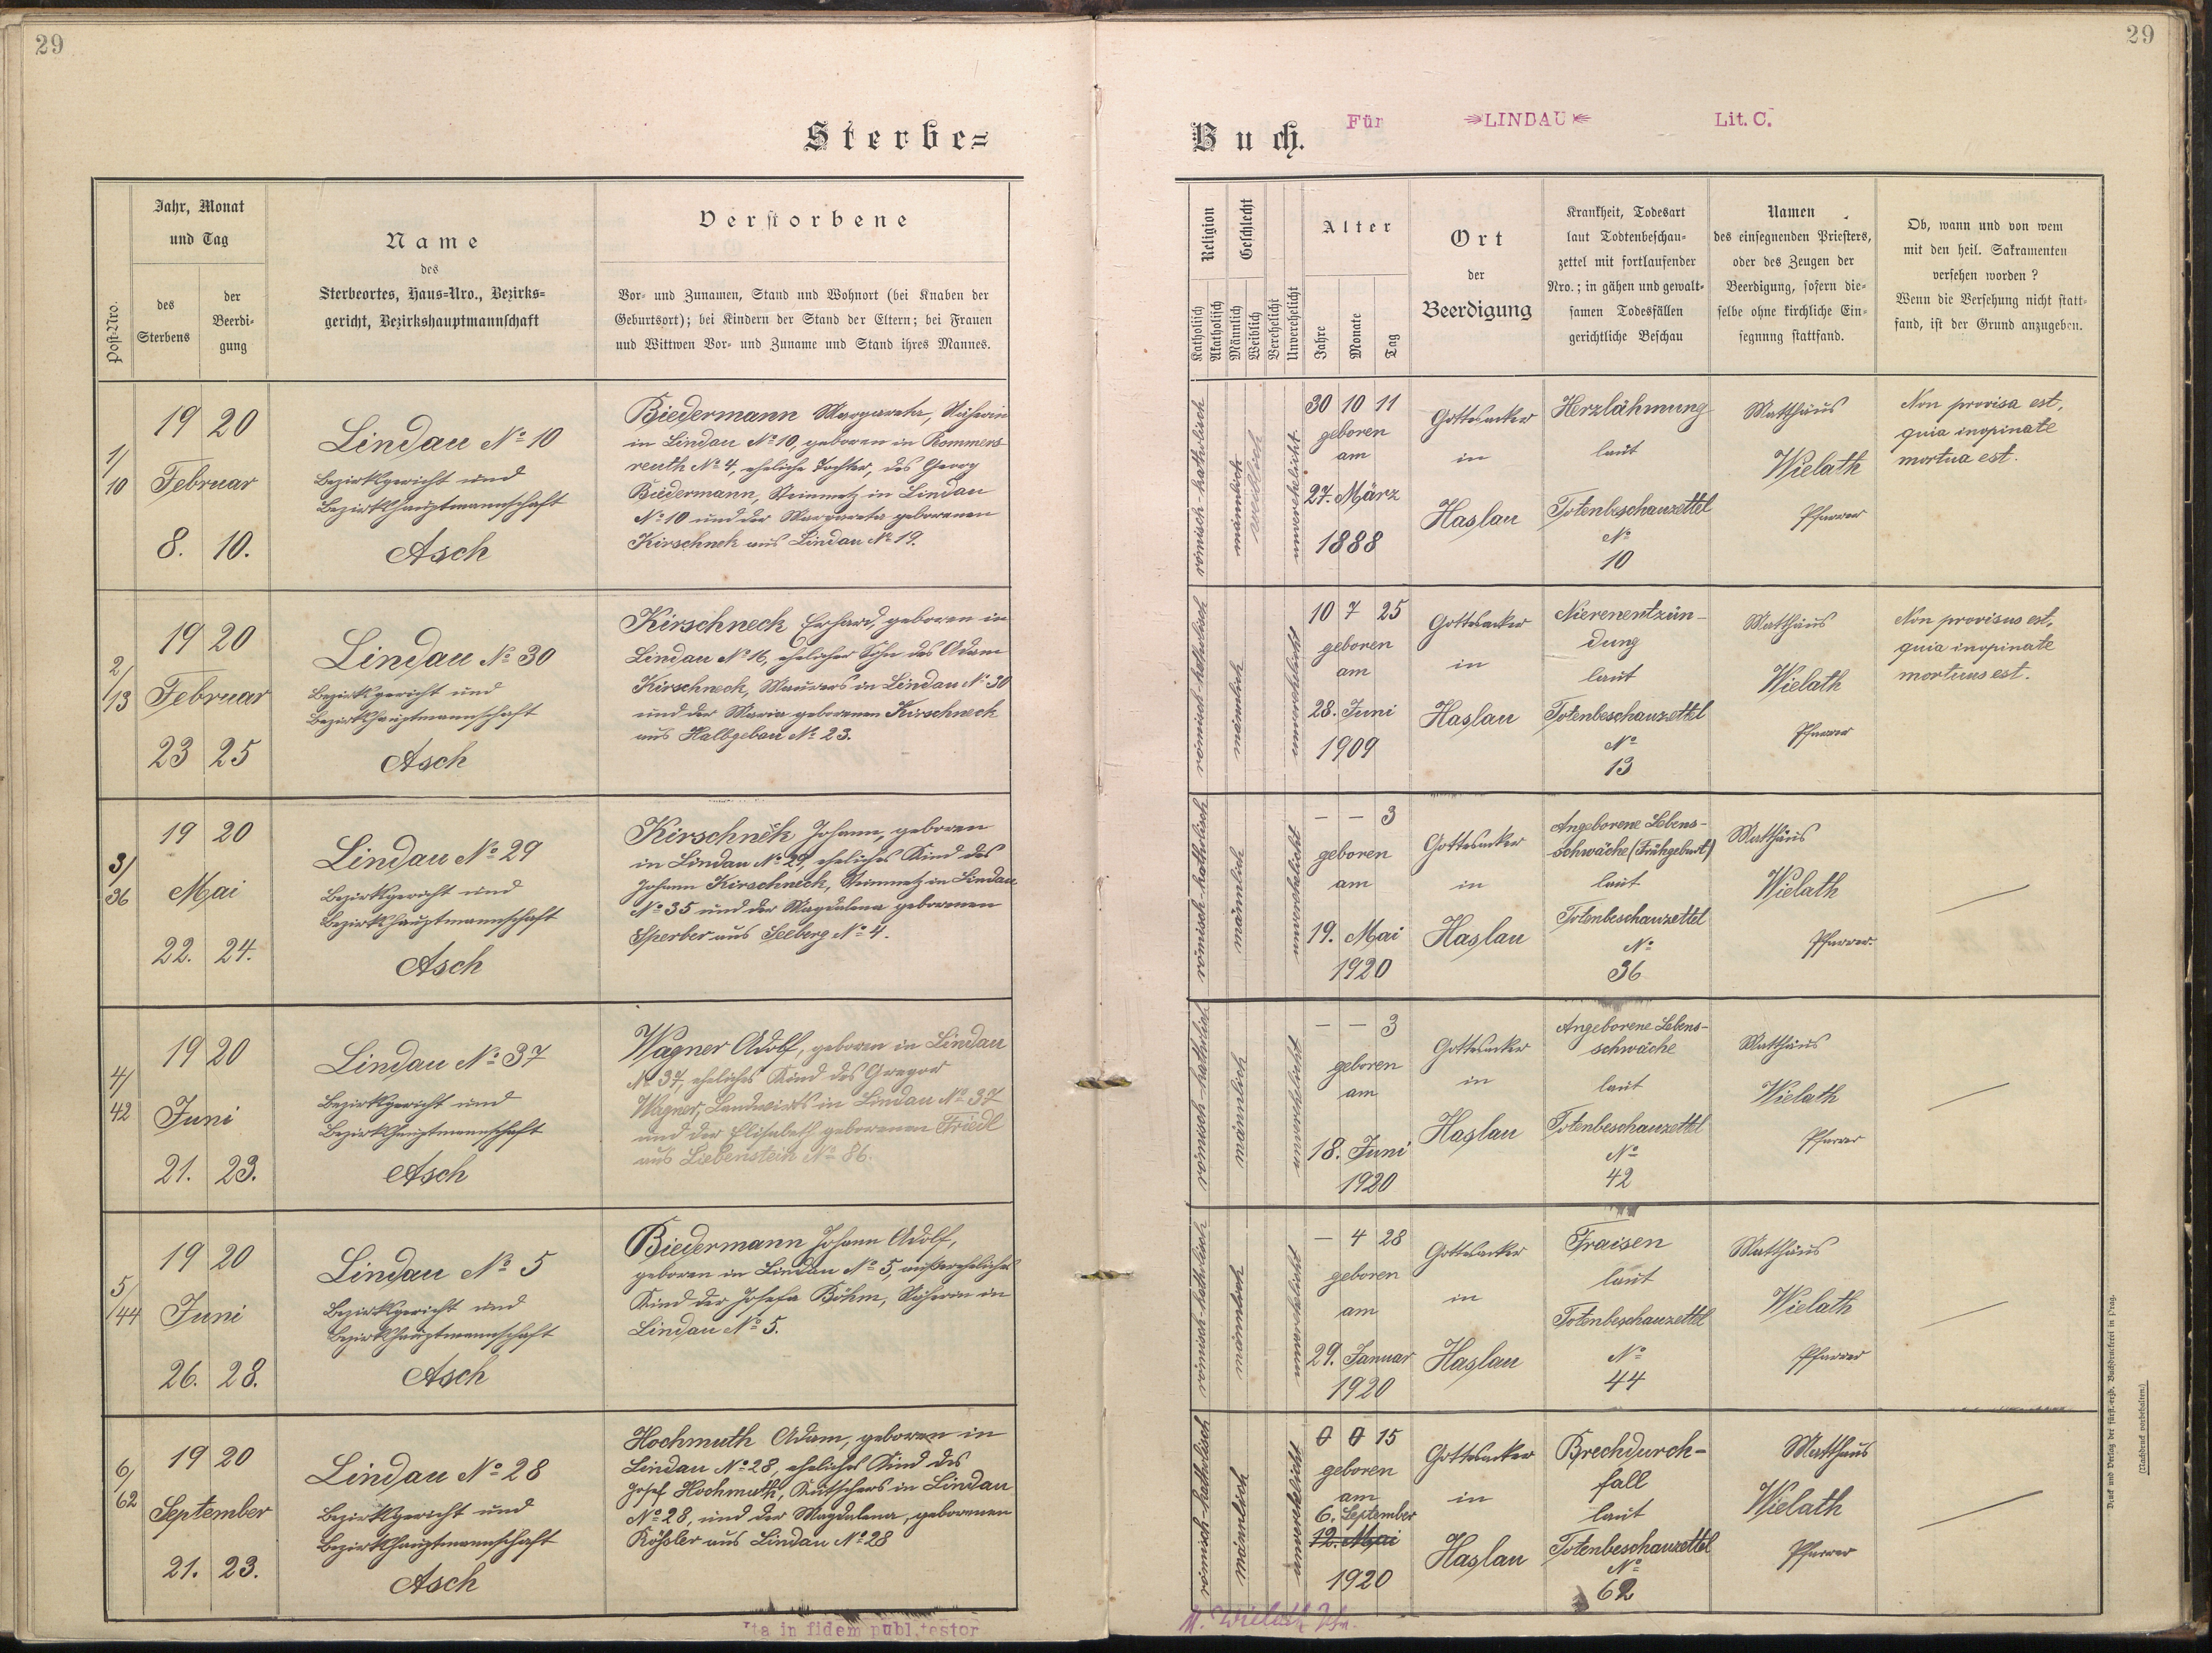 29
29
Sterbe=
Buch.
Für »LINDAU« Lit. C.
Post-Nro.
Jahr, Monat
und Tag
des
Sterbens
der
Beerdi-
gung
Name
des
Sterbeortes, Haus-Nro., Bezirks-
gericht, Bezirkshauptmannschaft
Verstorbene
Vor- und Zunamen, Stand und Wohnort (bei Knaben der
Geburtsort); bei Kindern der Stand der Eltern; bei Frauen
und Wittwen Vor- und Zuname und Stand ihres Mannes.
Religion
Katholisch
Akatholisch
Geschlecht
Männlich
Weiblich
Verehelicht
Unverehelicht
Alter
Jahre
Monate
Tag
Ort
der
Beerdigung
Krankheit, Todesart
laut Todtenbeschau-
zettel mit fortlaufender
Nro.; in gähen und gewalt-
samen Todesfällen
gerichtliche Beschau
Namen
des einsegnenden Priesters,
oder des Zeugen der
Beerdigung, sofern die-
selbe ohne kirchliche Ein-
segnung stattfand.
Ob, wann und von wem
mit den heil. Sakramenten
versehen worden?
Wenn die Versehung nicht statt-
fand, ist der Grund anzugeben.
1/
10
19 20
Februar
8. 10.
Lindau No 10
Bezirksgericht und
Bezirkshauptmannschaft
Asch
Biedermann Margareta, Näherin
in Lindau No 10, geboren in Rommers
reuth No 4, eheliche Tochter, des Georg
Biedermann, Steinmetz in Lindau
No 10 und der Margareta geborenen
Kirschnek aus Lindau No 19.
römisch-katholisch
männlich
weiblich
unverehelicht.
30 10 11
geboren
am
27. März
1888
Gottesacker
in
Haslau
Herzlähmung
laut
Totenbeschauzettel
No
10
Matthäus
Wielath
Pfarrer
Non provisa est,
quia inopinate
mortua est.
2/
13
19 20
Februar
23 25
Lindau No 30
Bezirksgericht und
Bezirkshauptmannschaft
Asch
Kirschneck Erhard, geboren in
Lindau No 16, ehelicher Sohn des Adam
Kirschneck, Maurers in Lindau No 30
und der Maria geborenen Kirschneck
aus Halbgebau No 23.
römisch-katholisch
männlich
unverehelicht
10 7 25
geboren
am
28. Juni
1909
Gottesacker
in
Haslau
Nierenentzün-
dung
laut
Totenbeschauzettel
No
13
Matthäus
Wielath
Pfarrer
Non provisus est,
quia inopinate
mortuus est.
3/
36
19 20
Mai
22. 24.
Lindau No 29
Bezirksgericht und
Bezirkshauptmannschaft
Asch
Kirschnek, Johann, geboren
in Lindau No 29, eheliches Kind des
Johann Kirschneck, Steinmetz in Lindau
No 35 und der Magdalena geborenen
Sperber aus Seeberg No 4.
römisch-katholisch
männlich
unverehelicht
– – 3
geboren
am
19. Mai
1920
Gottesacker
in
Haslau
Angeborene Lebens-
schwäche (Frühgeburt)
laut
Totenbeschauzettel
No
36
Matthäus
Wielath
Pfarrer.
4/
42
19 20
Juni
21. 23.
Lindau No 37
Bezirksgericht und
Bezirkshauptmannschaft
Asch
Wagner Adolf, geboren in Lindau
No 37, eheliches Kind des Gregor
Wagner, Landwirts in Lindau No 37
und der Elisabeth geborenen Friedl
aus Liebenstein No 86.
römisch-katholisch
männlich
unverehelicht
– – 3
geboren
am
18. Juni
1920
Gottesacker
in
Haslau
Angeborene Lebens-
schwäche
laut
Totenbeschauzettel
No
42
Matthäus
Wielath
Pfarrer
5/
44
19 20
Juni
26. 28.
Lindau No 5
Bezirksgericht und
Bezirkshauptmannschaft
Asch
Biedermann Johann Adolf,
geboren in Lindau No 5, außereheliches
Kind der Josefa Böhm, Näherin in
Lindau No 5.
römisch-katholisch
männlich
unverehelicht
– 4 28
geboren
am
29. Januar
1920
Gottesacker
in
Haslau
Fraisen
laut
Totenbeschauzettel
No
44
Matthäus
Wielath
Pfarrer
6/
62
19 20
September
21. 23.
Lindau No 28
Bezirksgericht und
Bezirkshauptmannschaft
Asch
Hochmuth Adam, geboren in
Lindau No 28, eheliches Kind des
Josef Hochmuth, Kutschers in Lindau
No 28, und der Magdalena, geborenen
Köhsler aus Lindau No 28
römisch-katholisch
männlich
unverehelicht
0 0 15
geboren
am
6. September
12. Mai
1920
Gottesacker
in
Haslau
Brechdurch-
fall
laut
Totenbeschauzettel
No
62
Matthäus
Wielath
Pfarrer
Ita in fidem publ. testor
M. Wielath Pfr.
Druck und Verlag der fürst-erzb. Buchdruckerei in Prag.
(Nachdruck vorbehalten.)